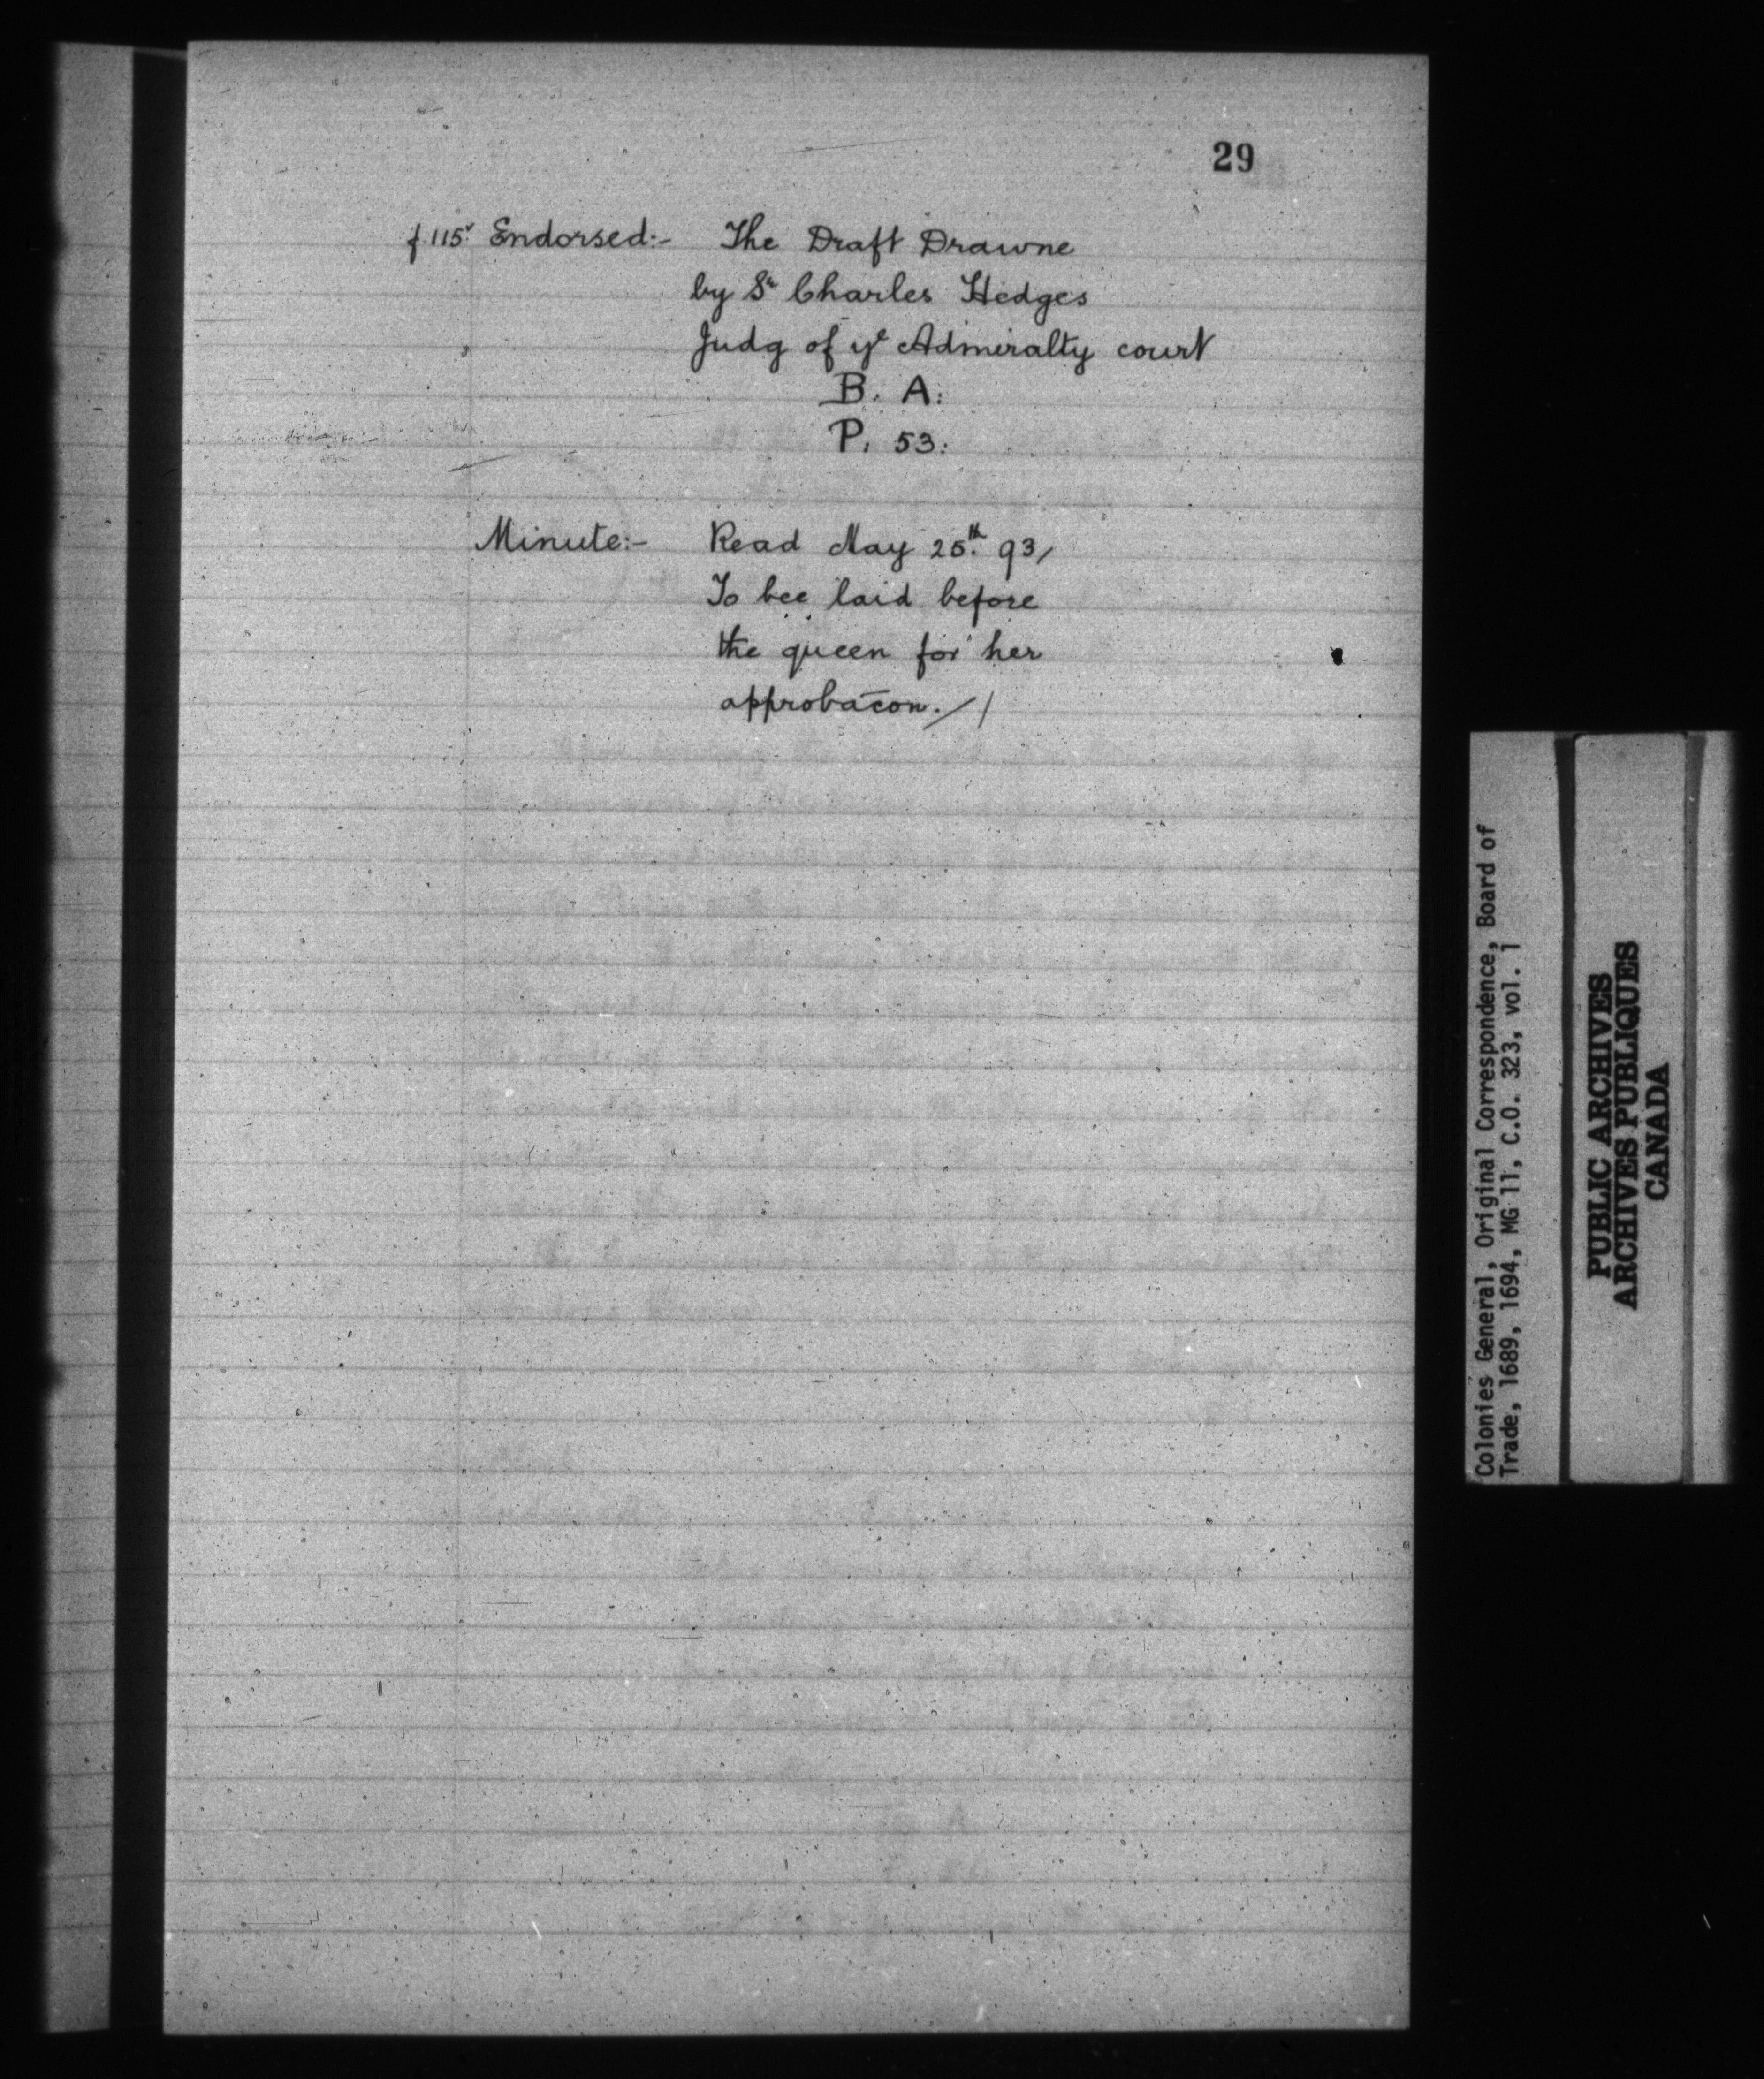 29
f. 115v. Endorsed:- The Draft Drawne
by Sr Charles Hedges
Judg of ye Admiralty court
B. A:
P. 53:
Minute:- Read May 25th. 93/
To bee laid before
the queen for her
approbacōn./ /
Colonies General, Original Correspondence, Board of
Trade, 1689, 1694, MG 11, C.O. 323, vol. 1
PUBLIC ARCHIVES
ARCHIVES PUBLIQUES
CANADA